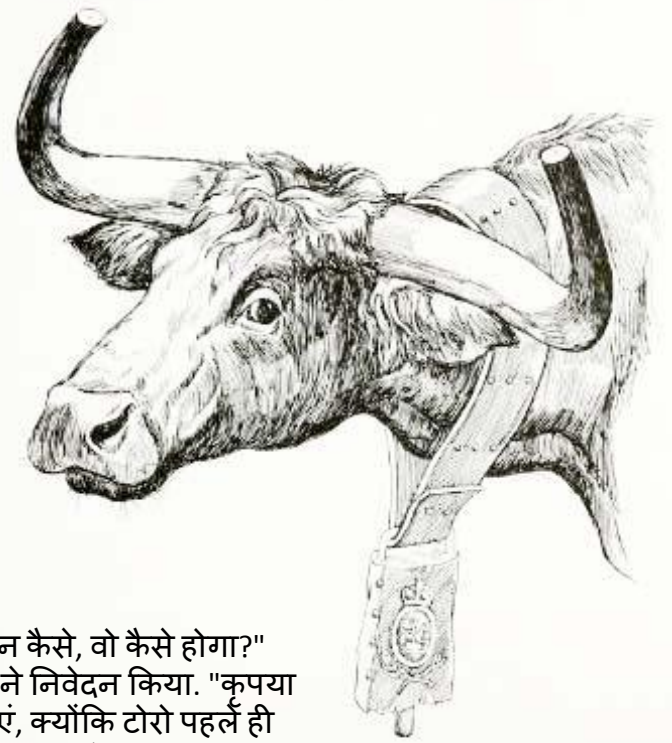 न कैसे, वो कैसे होगा?"
ने निवेदन किया. "कृपया
एं, क्योंकि टोरो पहले ही